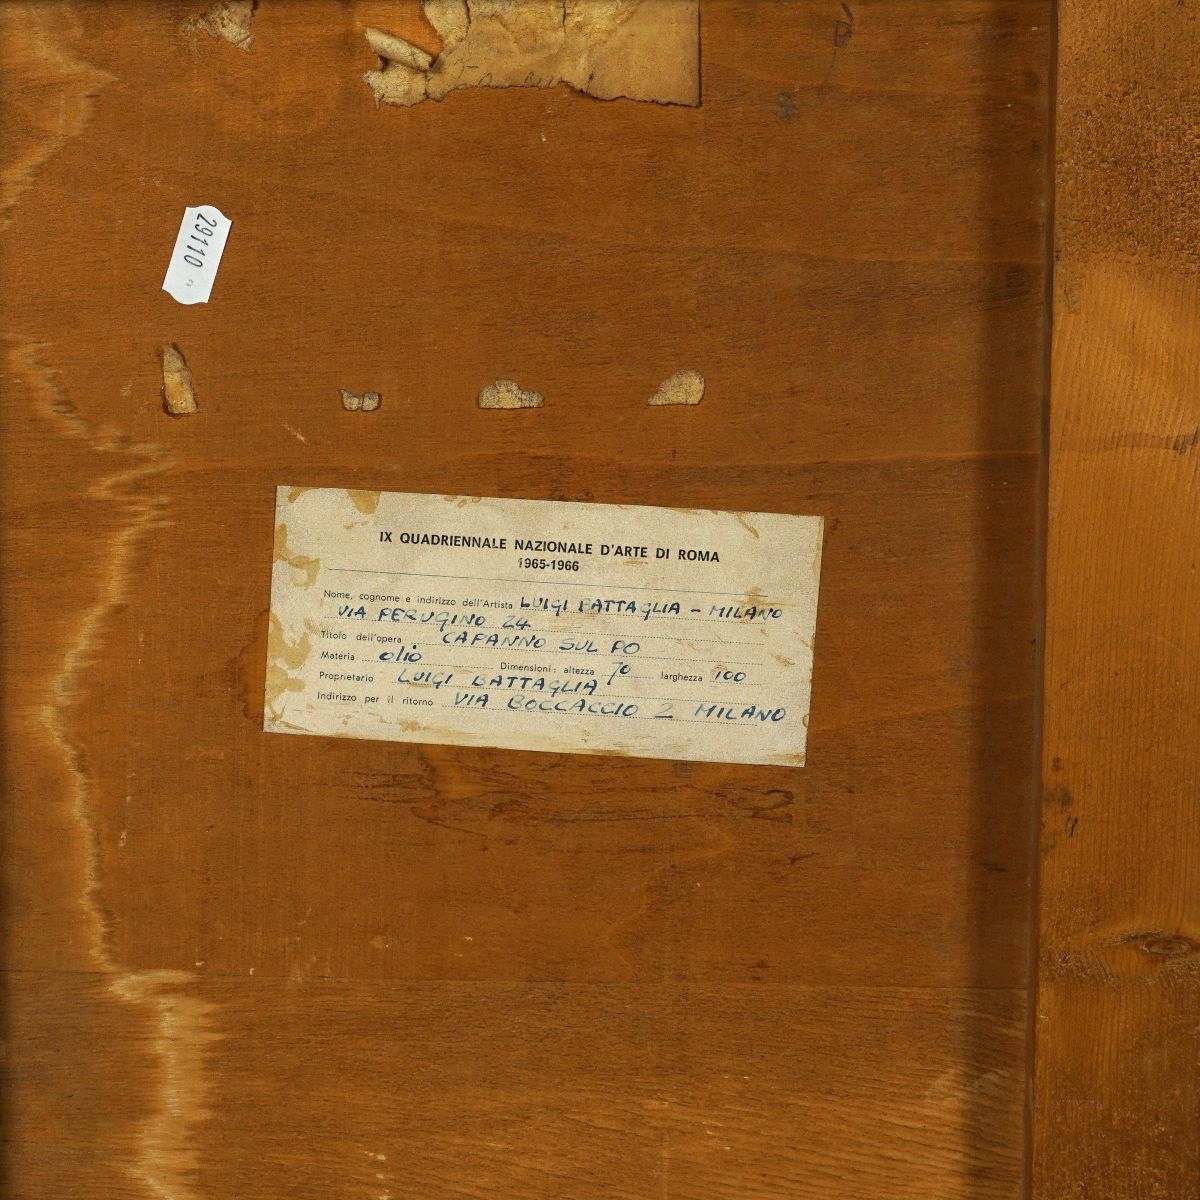 29110
IX QUADRIENNALE NAZIONALE D'ARTE DI ROMA
1965-1966
Nome, cognome e indirizzo dell'Artista LUIGI BATTAGLIA - MILANO
VIA PERUGINO 24
Titolo dell'opera CAPANNO SUL PO
Materia olio Dimensioni: altezza 70 larghezza 100
Proprietario LUIGI BATTAGLIA
Indirizzo per il ritorno VIA BOCCACCIO 2 MILANO